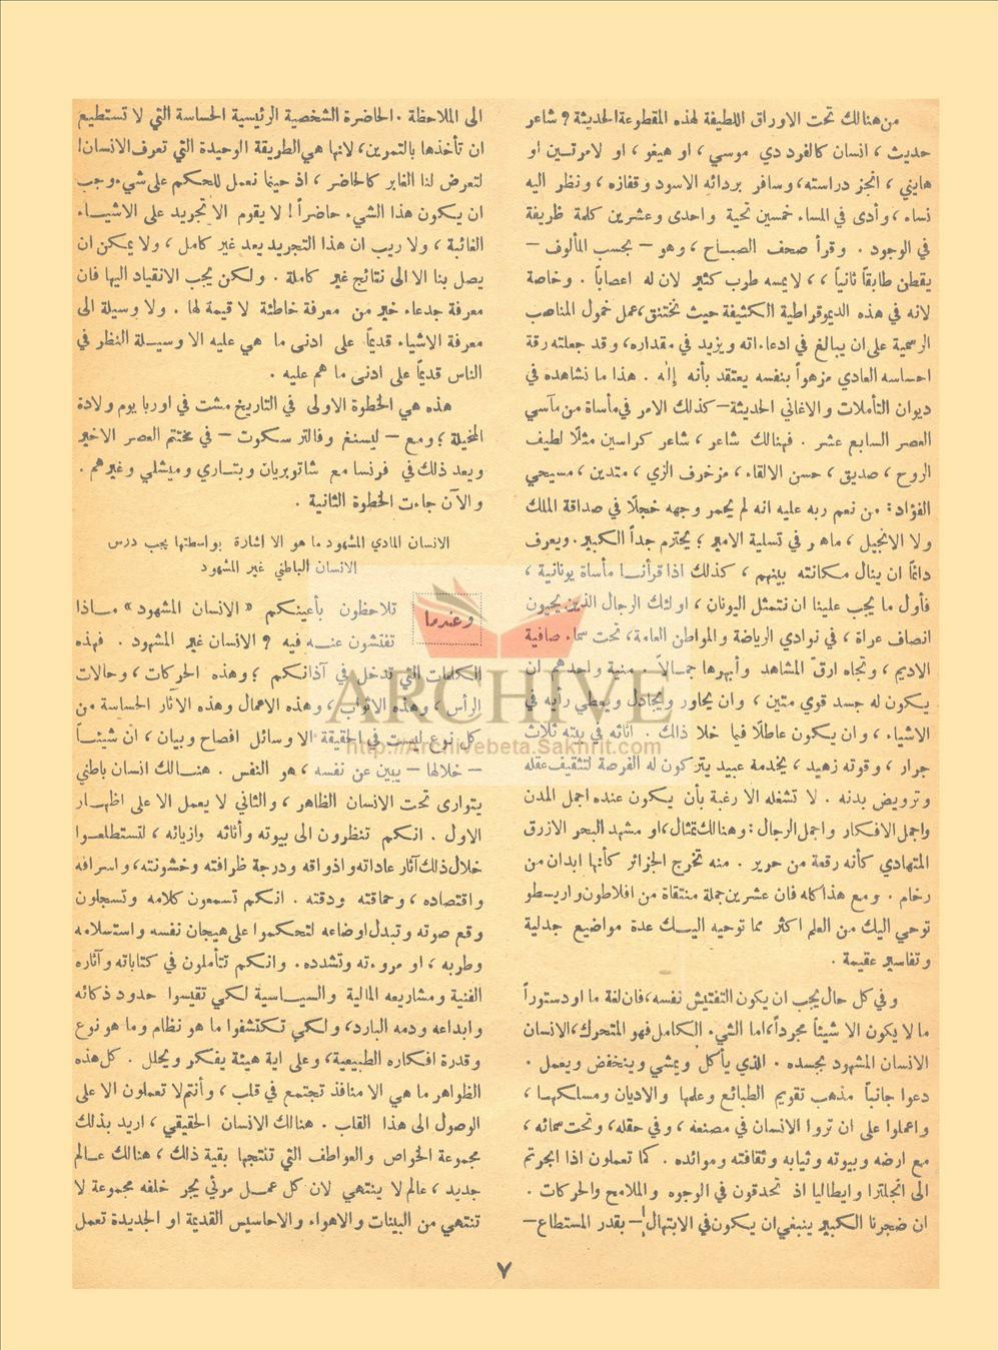 من هنالك تحت الاوراق اللطيفة لهذه المقطوعة الحديثة ؟ شاعر
حديث ، انسان كالفرد دي موسي ، او هيغو ، او لامرتسين او
هايني ، انجز دراسته، وسافر بردائه الاسود وقفازه ، ونظر اليه
نساء ، وأدى في المساء خمسين تحية واحدى وعشرين كلمة ظريفة
في الوجود . وقرأ صحف الصباح ، وهو – بحسب المألوف –
يقطن طابقاً ثانياً ، ، لا يمسه طرب كثير لان له اعصاباً . وخاصة
لانه في هذه الديموقراطية الكثيفة حيث نختنق، عمل خمول المناصب
الرسمية على ان يبالغ في ادعاءاته ويزيد في مقداره، وقد جعلته رقة
احساسه العادي مزهواً بنفسه يعتقد بأنه إله . هذا ما نشاهده في
ديوان التأملات والاغاني الحديثة – كذلك الامر في مأساة من مآسي
العصر السابع عشر . فهنالك شاعر ، شاعر كراسين مثلًا لطيف
الروح ، صديق ، حسن الالقاء ، مزخرف الزي ، متدين ، مسيحي
الفؤاد: من نعم ربه عليه انه لم يحمر وجهه خجلًا في صداقة الملك
ولا الانجيل ، ماهر في تسلية الامير ؛ يحترم جداً الكبير . ويعرف
دائماً ان ينال مكانته بينهم ، كذلك اذا قرأنا مأساة يونانية ،
فأول ما يجب علينا ان نتمثل اليونان ، اولئك الرجال الذين يحيون
انصاف عراة ، في نوادي الرياضة والمواطن العامة، تحت سماء صافية
الاديم ، وتجاه ارقّ المشاهد وأبهرها جمالاً . منية واحدهم ان
يكون له جسد قوي متين ، وان يحاور ويجادل ويعطي رأيه في
الاشياء ، وان يكون عاطلًا فيما خلا ذالك . اثاثه في بيته ثلاث
جرار ، وقوته زهيد ، يخدمه عبيد يتركون له الفرصة لتثقيف عقله
وترويض بدنه . لا تشغله الا رغبة بأن يكون عنده اجمل المدن
واجمل الافكار واجمل الرجال : وهنالك تمثال، او مشهد البحر الازرق
المتهادي كأنه رقعة من حرير . منه تخرج الجزائر كأنها ابدان من
رخام . ومع هذا كله فان عشرين جملة منتقاة من افلاطون واريسطو
توحي اليك من العلم اكثر مما توحيه اليك عدة مواضيع جدلية
وتفاسير عقيمة .
وفي كل حال يجب ان يكون التفتيش نفسه، فان لغة ما او دستوراً
ما لا يكون الا شيئاً مجرداً، اما الشيء الكامل فهو المتحرك، الانسان
الانسان المشهود بجسده . الذي يأكل ويمشي وينخفض ويعمل .
دعوا جانباً مذهب تقويم الطبائع وعلمها والاديان ومسلكها ،
واعملوا على ان تروا الانسان في مصنعه ، وفي حقله، وتحت سمائه ،
مع ارضه وبيوته وثيابه وثقافته وموائده . كما تعملون اذا ابحرتم
الى انجلترا وايطاليا اذ تحدقون في الوجوه والملامح والحركات .
ان ضجرنا الكبير ينبغي ان يكون في الابتهال – بقدر المستطاع –
الى الملاحظة . الحاضرة الشخصية الرئيسية الحساسة التي لا تستطيع
ان تأخذها بالتمرين، لانها هي الطريقة الوحيدة التي تعرف الانسان!
لتعرض لنا الغابر كالحاضر ، اذ حينما نعمل للحكم على شيء وجب
ان يكون هذا الشيء حاضراً ! لا يقوم الا تجريد على الاشياء
الغائبة ، ولا ريب ان هذا التجريد يعد غير كامل ، ولا يمكن ان
يصل بنا الا الى نتائج غير كاملة . ولكن يجب الانقياد اليها فان
معرفة جدعاء خير من معرفة خاطئة لا قيمة لها . ولا وسيلة الى
معرفة الاشياء قديماً على ادنى ما هي عليه الا وسيلة النظر في
الناس قديماً على ادنى ما هم عليه .
هذه هي الخطوة الاولى في التاريخ مشت في اوربا يوم ولادة
المخيلة ؛ ومع – ليسنغ وفالتر سكوت – في مختتم العصر الاخير
وبعد ذلك في فرنسا مع شاتوبريان وبتاري وميشلي وغيرهم .
والآن جاءت الخطوة الثانية .
الانسان المادي المشهود ما هو الا اشارة بواسطتها يجب درس
الانسان الباطني غير المشهود
وعندما تلاحظون بأعينكم « الانسان المشهود » ماذا
تفتشون عنه فيه ؟ الانسان غير المشهود . فهذه
الكلمات التي تدخل في آذانكم ؛ وهذه الحركات ، وحالات
الرأس ، وهذه الاثواب ، وهذه الاعمال وهذه الآثار الحساسة من
كل نوع ليست في الحقيقة الا وسائل افصاح وبيان ، ان شيئاً
– خلالها – يبين عن نفسه ، هو النفس . هنالك انسان باطني
يتوارى تحت الانسان الظاهر ، والثاني لا يعمل الا على اظهار
الاول . انكم تنظرون الى بيوته وأثاثه وازيائه ، لتستطلعوا
خلال ذلك آثار عاداته واذواقه ودرجة ظرافته وخشونته، واسرافه
واقتصاده ، وحماقته ودقته . انكم تسمعون كلامه وتسجلون
وقع صوته وتبدل اوضاعه لتحكموا على هيجان نفسه واستسلامه
وطربه ، او مروءته وتشدده. وانكم تتأملون في كتاباته وآثاره
الفنية ومشاريعه المالية والسياسية لكي تقيسوا حدود ذكائه
وابداعه ودمه البارد، ولكي تكتشفوا ما هو نظام وما هو نوع
وقدرة افكاره الطبيعية، وعلى اية هيئة يفكر ويحلل . كل هذه
الظواهر ما هي الا منافذ تجتمع في قلب ، وأنتم لا تعملون الا على
الوصول الى هذا القلب . هنالك الانسان الحقيقي ، اريد بذلك
مجموعة الخواص والعواطف التي تنتجها بقية ذلك ، هنالك عالم
جديد ، عالم لا ينتهي لان كل عمل مرئي يجر خلفه مجموعة لا
تنتهي من البينات والاهواء والاحاسيس القديمة او الجديدة تعمل
ARCHIVE
http://Archivebeta.Sakhrit.com
٧